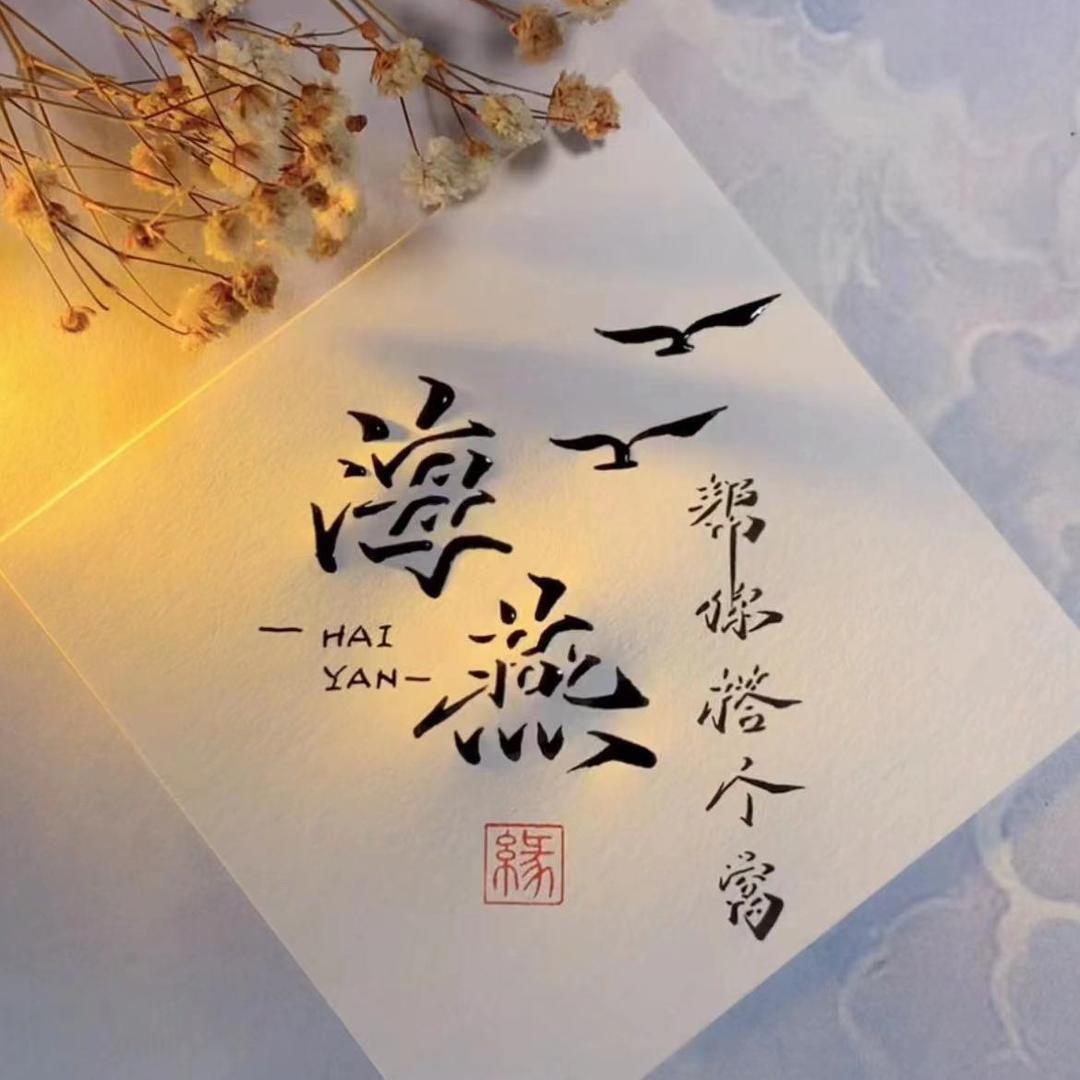 海燕
— HAI
YAN —
帮你搭个窝
緣